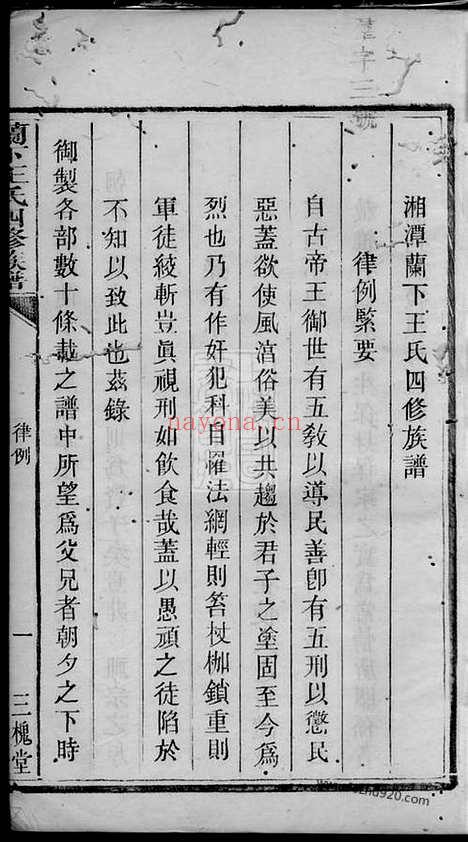 湘潭蘭下王氏四修族譜
律例緊要
自古帝王御世有五敎以導民善卽有五刑以懲民
惡蓋欲使風湻俗美以共趨於君子之塗固至今爲
烈也乃有作奸犯科自罹法網輕則笞杖枷鎖重則
軍徒絞斬豈眞視刑如飲食哉蓋以愚頑之徒陷於
不知以致此也茲錄
御製各部數十條載之譜中所望爲父兄者朝夕之下時
蘭下王氏四修族譜
律例
一
三槐堂
nayona.cn